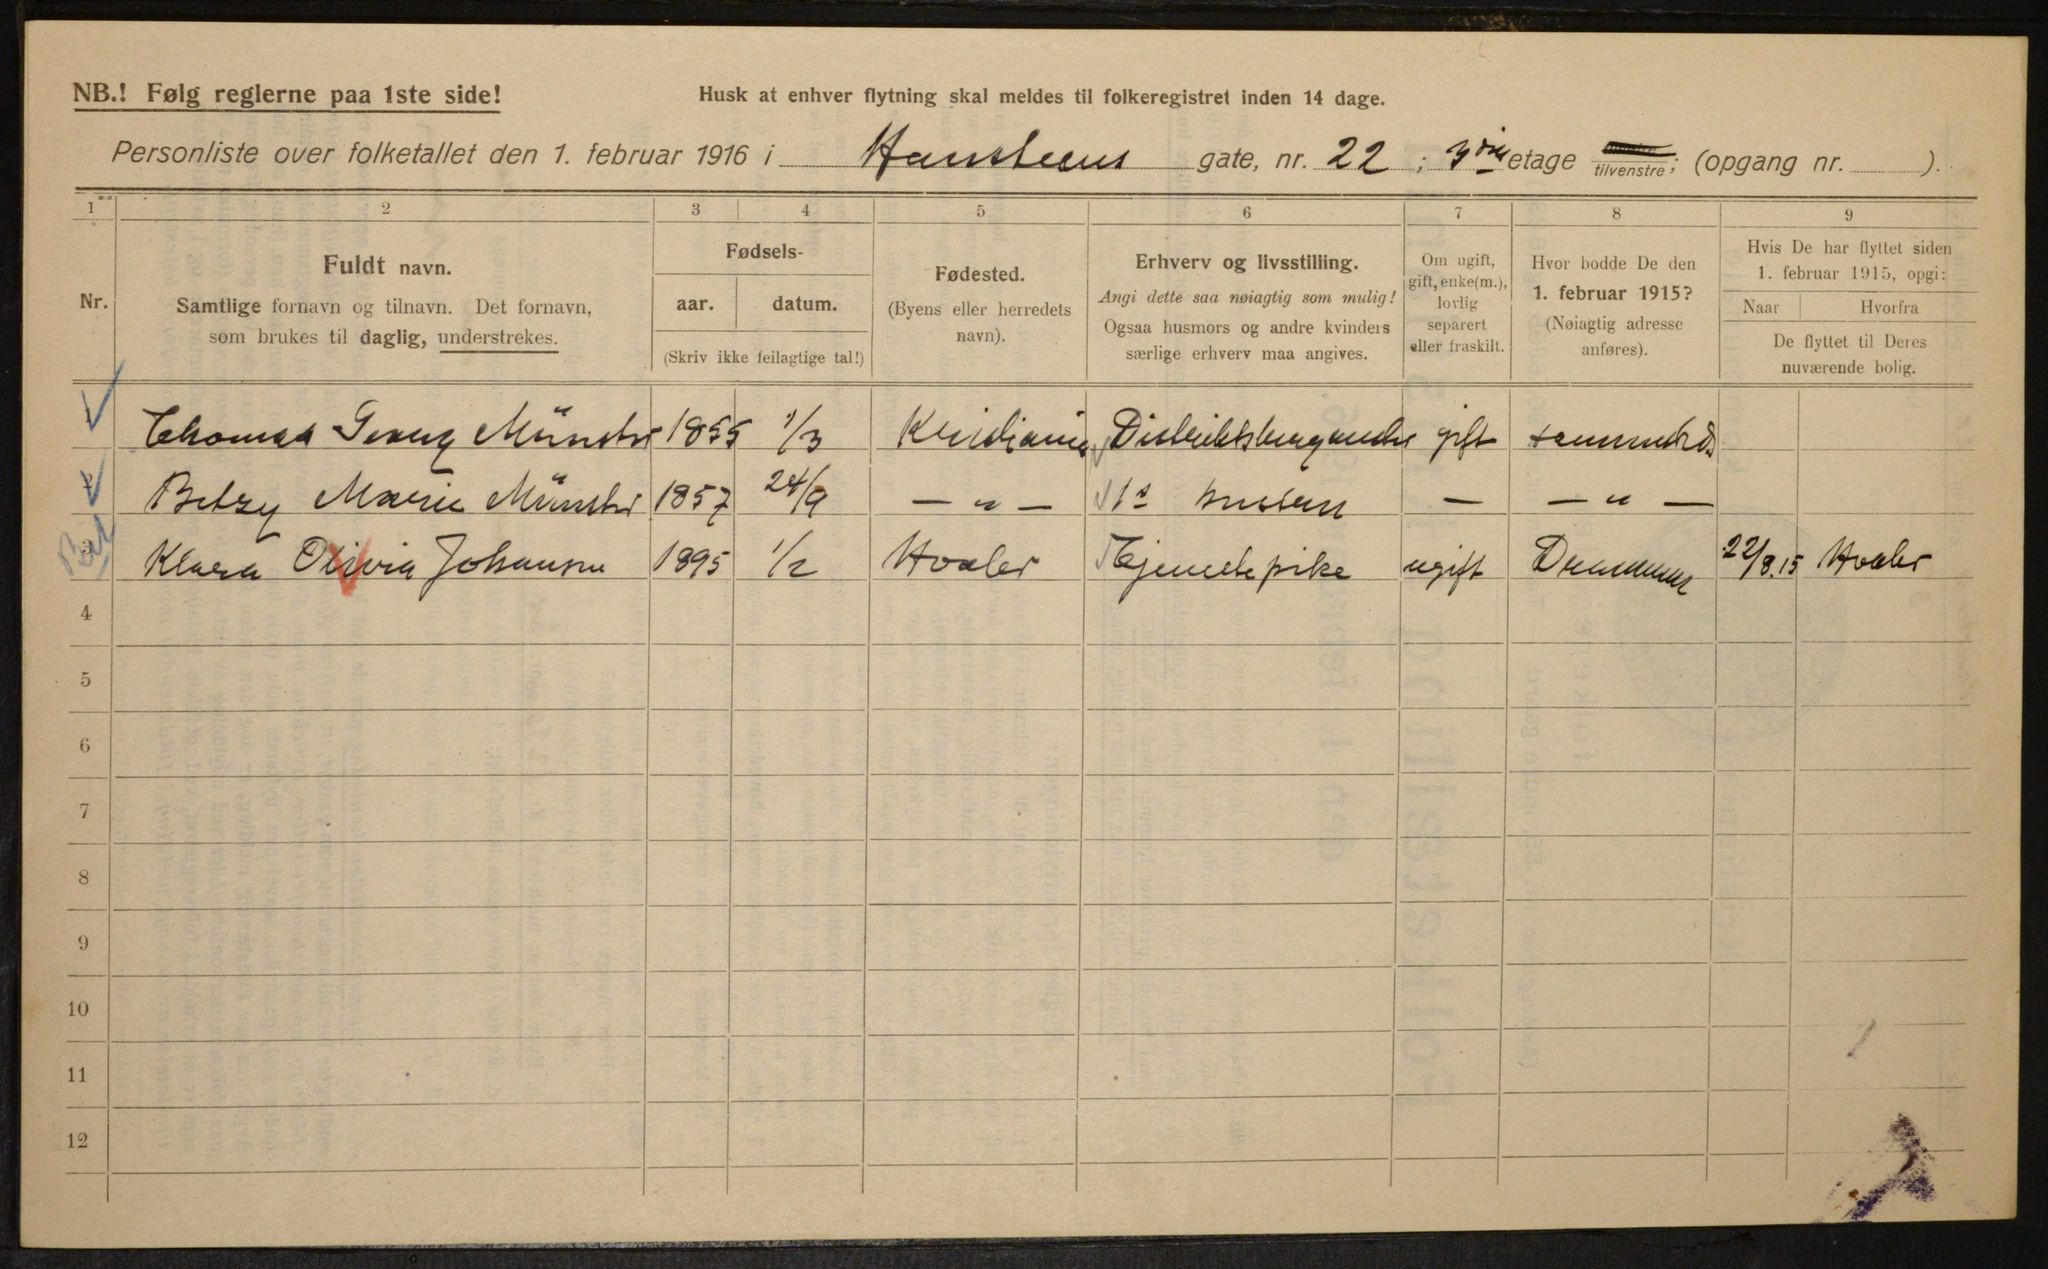 NB.! Følg reglerne paa 1ste side!
Husk at enhver flytning skal meldes til folkeregistret inden 14 dage.
Personliste over folketallet den 1. februar 1916 i Hansteens gate, nr. 22 ; 3die etage tilvenstre; (opgang nr. ).
1 2 3 4 5 6 7 8 9
Nr.
Fuldt navn.
Samtlige fornavn og tilnavn. Det fornavn,
som brukes til daglig, understrekes.
Fødsels-
aar. datum.
(Skriv ikke feilagtige tal!)
Fødested.
(Byens eller herredets
navn).
Erhverv og livsstilling.
Angi dette saa nøiagtig som mulig!
Ogsaa husmors og andre kvinders
særlige erhverv maa angives.
Om ugift,
gift, enke(m.),
lovlig
separert
eller fraskilt.
Hvor bodde De den
1. februar 1915?
(Nøiagtig adresse
anføres).
Hvis De har flyttet siden
1. februar 1915, opgi:
Naar Hvorfra
De flyttet til Deres
nuværende bolig.
1 Thomas Georg Münster 1855 1/3 Kristiania gift sammesteds
2 Betzy Marie Münster 1857 24/9 — " — — — " —
3 Klara Olivia Johansen 1895 1/2 Hvaler Tjenestepike ugift Drammen 22/8.15 Hvaler
4
5
6
7
8
9
10
11
12